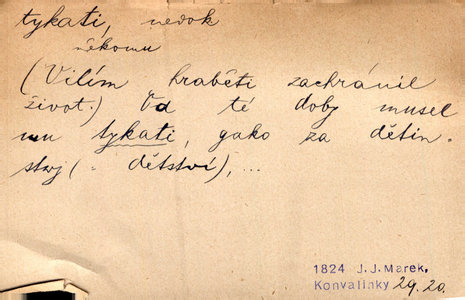 tykati, nedok
někomu
(Vilím hraběti zachránil
život.) Od té doby musel
mu tykati, gako za dětin-
stwj (= dětství), ...
1824 J. J. Marek,
Konvalinky 29.20.